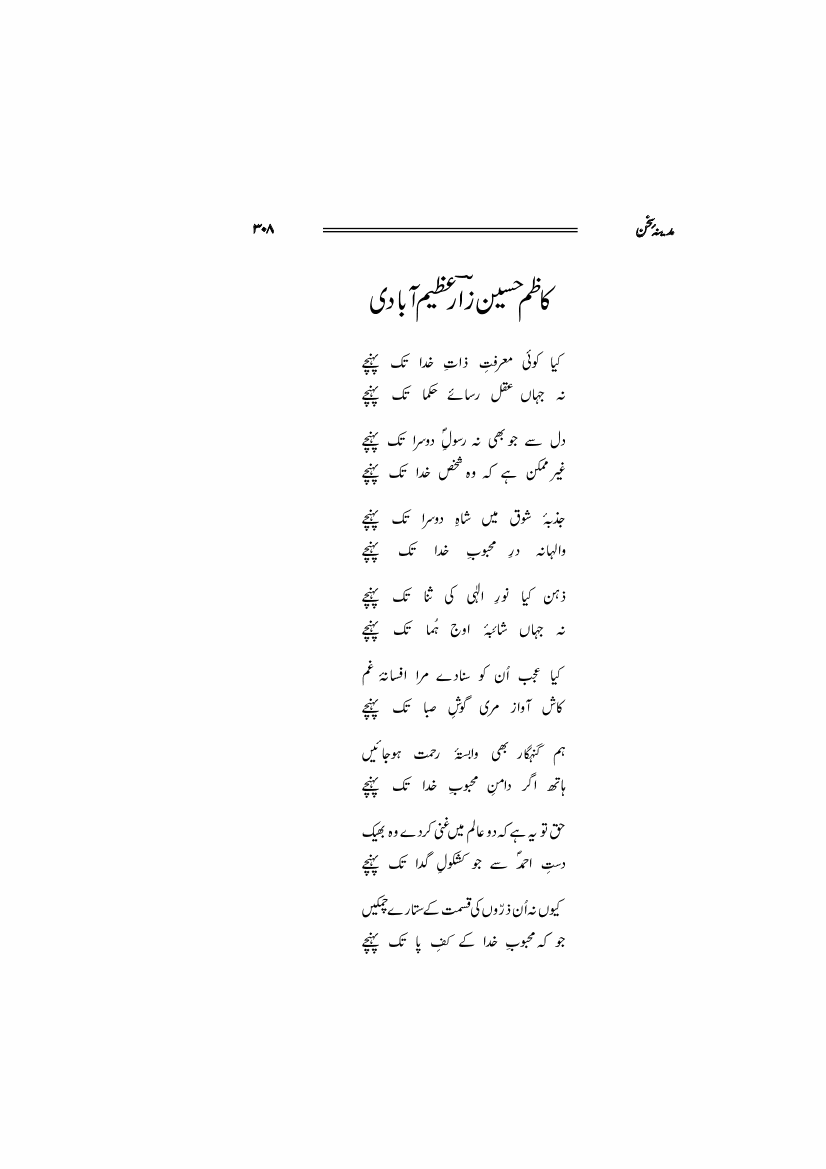 مدینۂ سخن ۳۰۸
کاظم حسین زارؔ عظیم آبادی
کیا کوئی معرفتِ ذاتِ خدا تک پہنچے
نہ جہاں عقل رسائے حکما تک پہنچے
دل سے جو بھی نہ رسولِؐ دوسرا تک پہنچے
غیر ممکن ہے کہ وہ شخص خدا تک پہنچے
جذبۂ شوق میں شاہِ دوسرا تک پہنچے
والہانہ درِ محبوبِ خدا تک پہنچے
ذہن کیا نورِ الٰہی کی ثنا تک پہنچے
نہ جہاں شائبۂ اوج ہُما تک پہنچے
کیا عجب اُن کو سنادے مرا افسانۂ غم
کاش آواز مری گوشِ صبا تک پہنچے
ہم گنہگار بھی وابستۂ رحمت ہوجائیں
ہاتھ اگر دامنِ محبوبِ خدا تک پہنچے
حق تو یہ ہے کہ دو عالم میں غنی کردے وہ بھیک
دستِ احمدؐ سے جو کشکولِ گدا تک پہنچے
کیوں نہ اُن ذرّوں کی قسمت کے ستارے چمکیں
جو کہ محبوبِ خدا کے کفِ پا تک پہنچے